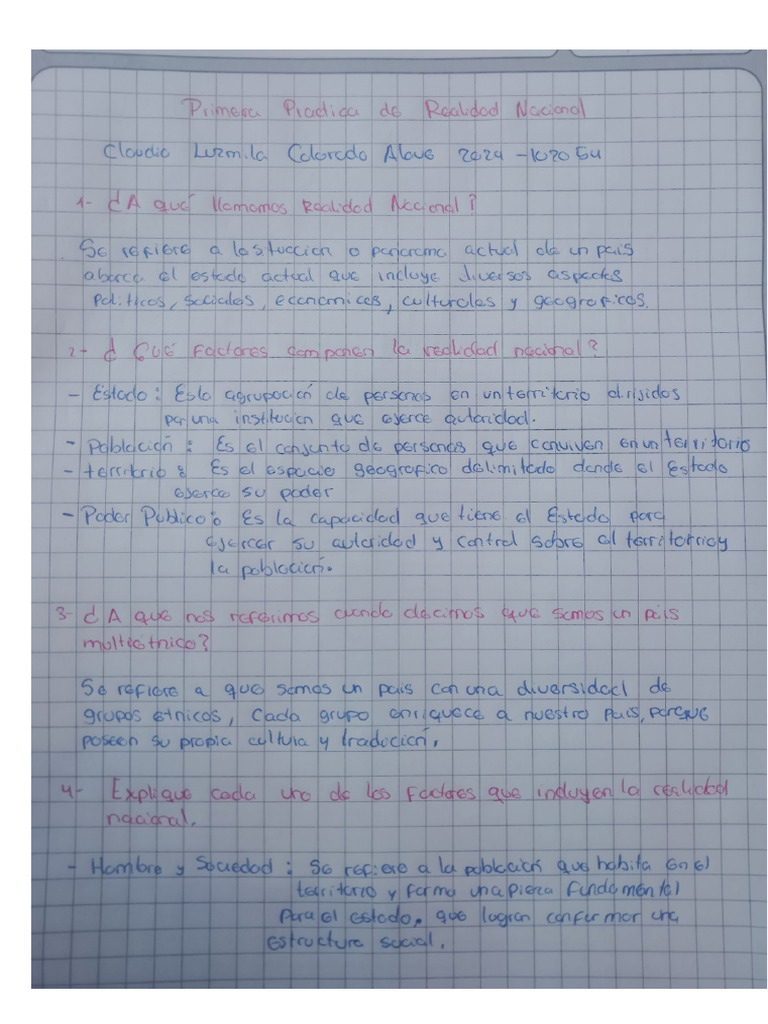 Primera Practica de Realidad Nacional
Claudia Luzmila Colorado Alave 2024-102054
1- ¿A qué llamamos Realidad Nacional?
Se refiere a la situccion o panorama actual de un pais
abarca el estado actual que incluye diversos aspectos
Politicos, sociales, economicos, culturales y geograficos.
2- ¿Qué Factores componen la realidad nacional?
- Estado: Es la agrupación de personas en un territorio dirijidos
por una institucion que ejerce autoridad.
- Población: Es el conjunto de personas que conviven en un territorio
- territorio: Es el espacio geografico delimitado donde el Estado
ejerce su poder
- Poder Publico: Es la capacidad que tiene el Estado para
ejercer su autoridad y control sobre el territorio y
la población.
3- ¿A que nos referimos cuando decimos que somos un país
multiétnico?
Se refiere a que somos un pais con una diversidad de
grupos etnicos, Cada grupo enriquece a nuestro país, porque
poseen su propia cultura y tradición.
4- Explique cada uno de los Factores que incluyen la realidad
nacional.
- Hombre y Sociedad: Se refiere a la población que habita en el
territorio y forma una pieza fundamental
para el estado, que logran conformar una
estructura social.